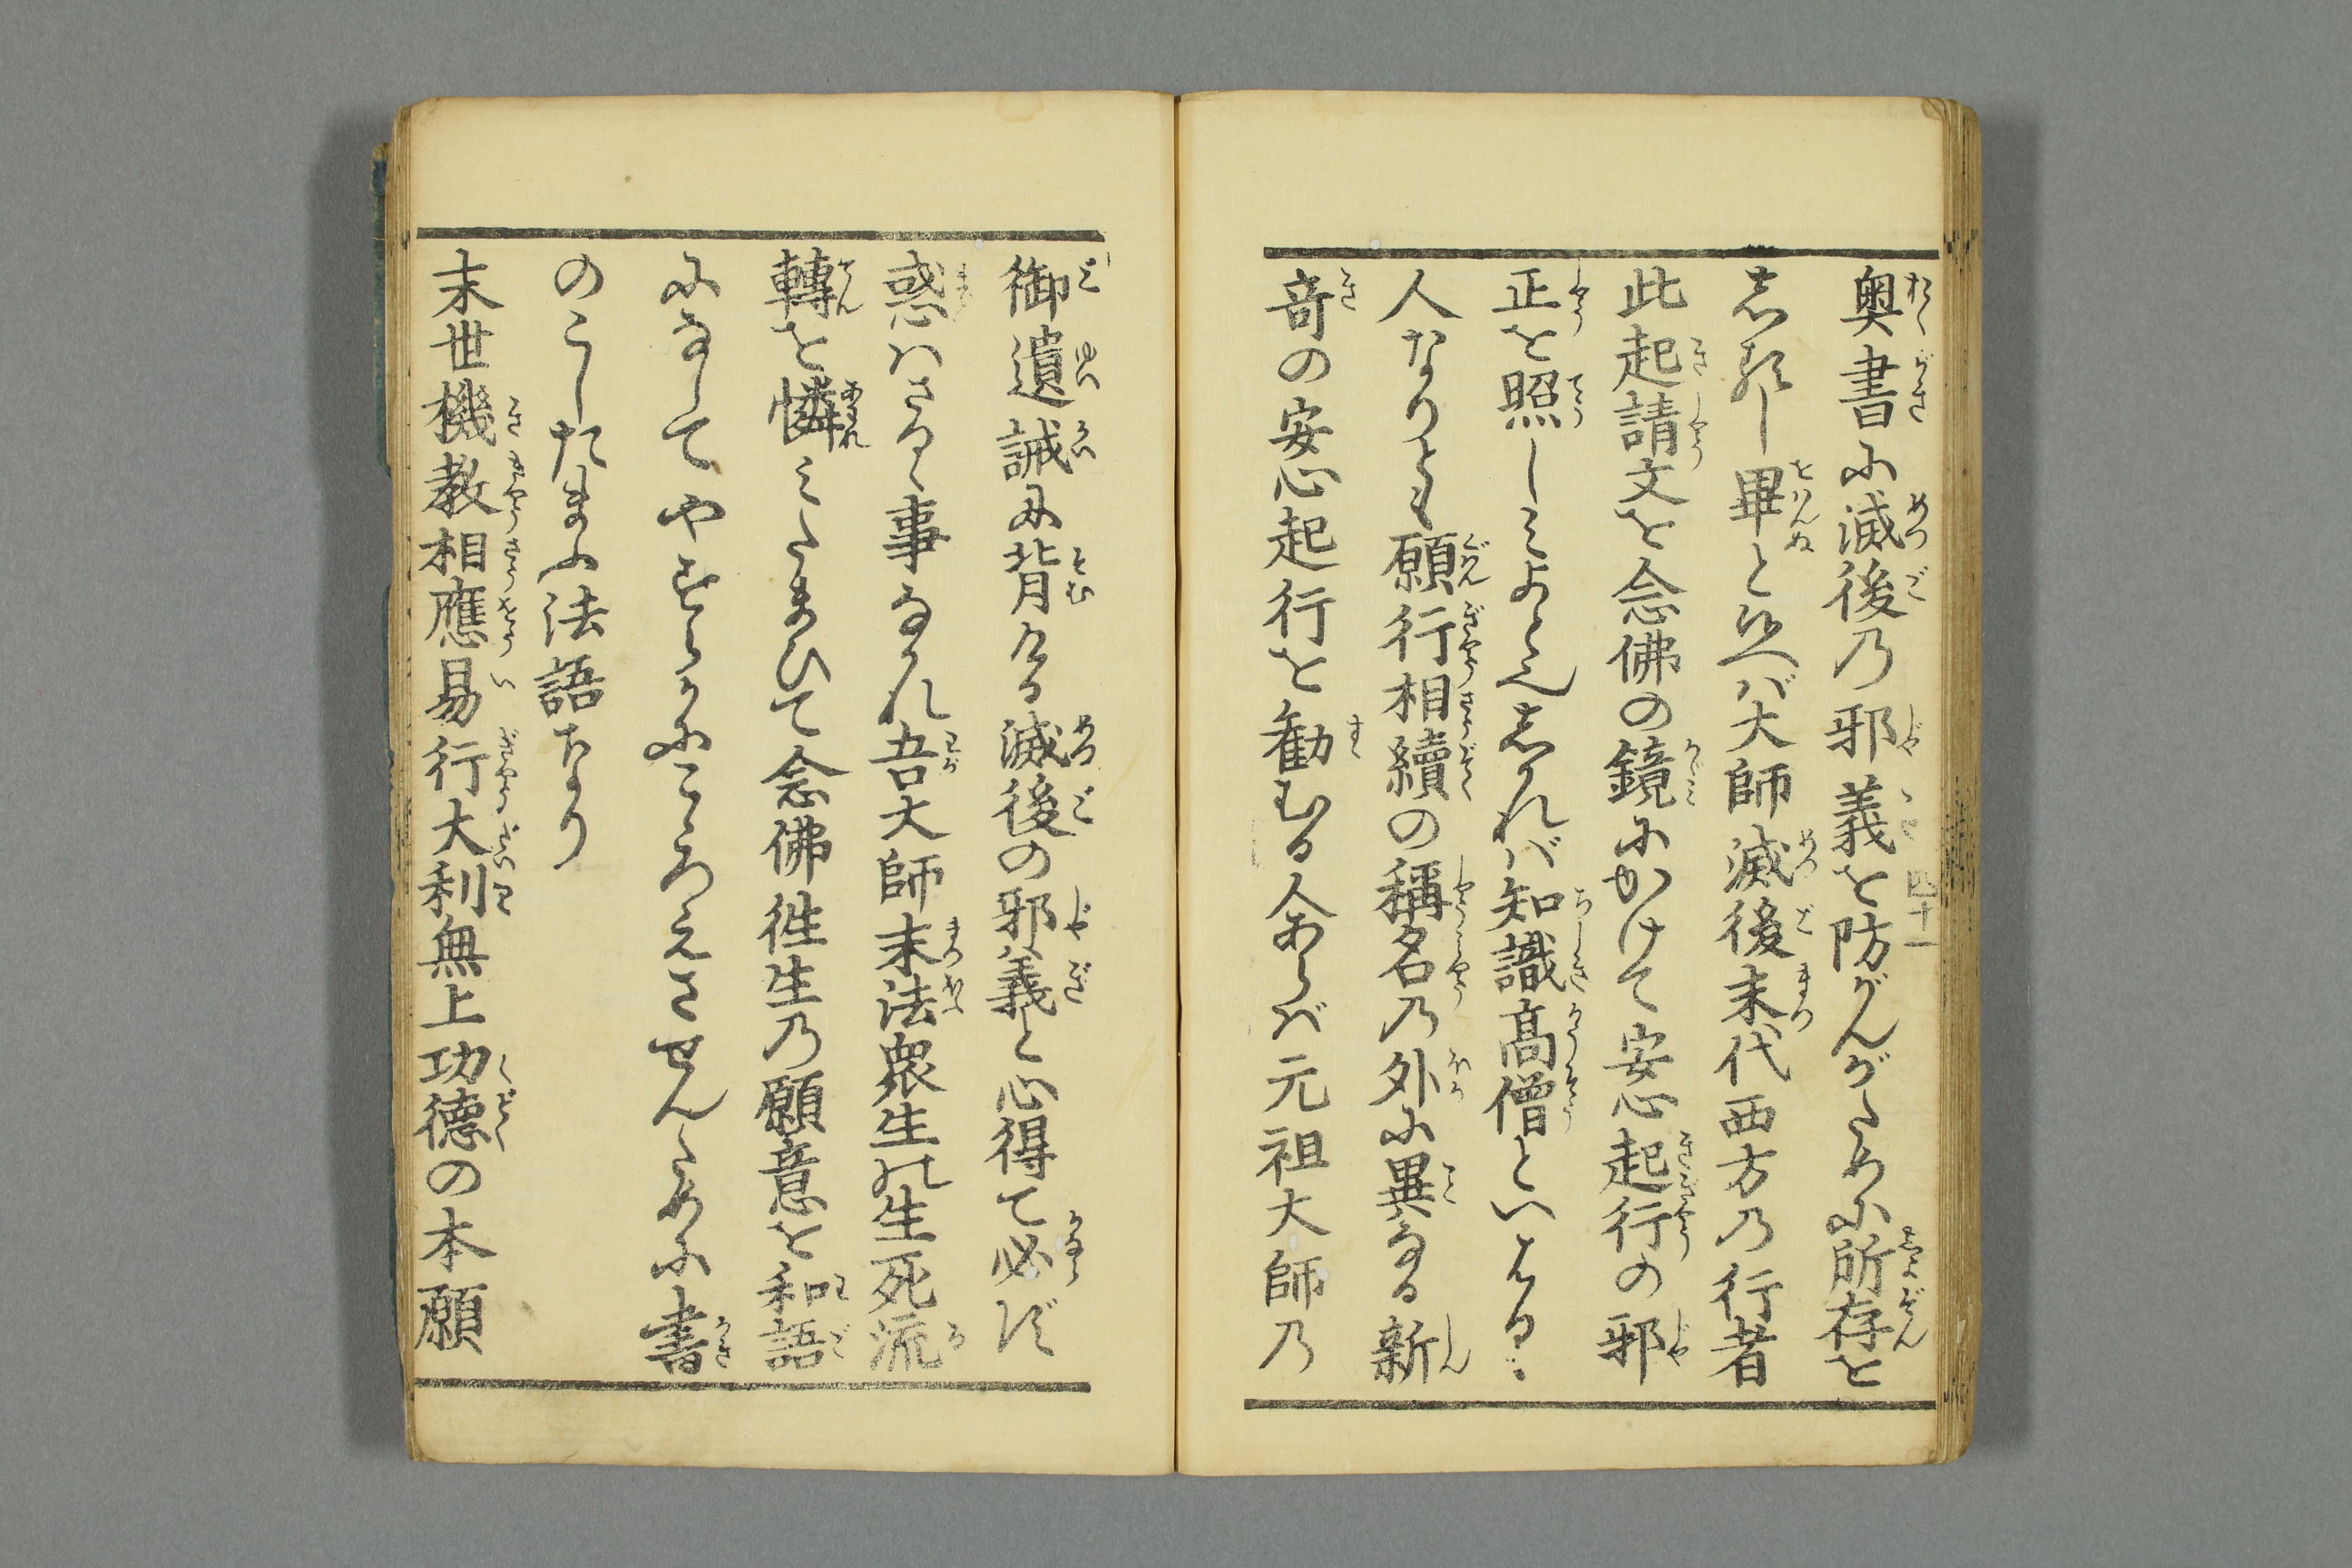 奥書に滅後乃邪義を防がんがために所存を
志るし畢と候へバ大師滅後末代西方乃行者
此起請文を念佛の鏡にかけて安心起行の邪
正を照しミよとん志かれバ知識高僧といはるゝ
人なりとも願行相續の稱名乃外に異なる新
奇の安心起行を勧むる人あらバ元祖大師乃
四十一
御遺誡に背ける滅後の邪義と心得て必ず
惑ハさるゝ事なかれ吾大師末法衆生の生死流
轉を憐ミたまひて念佛徃生乃願意を和語
になしてやすらかにこゝろえさせんために書
のこしたまふ法語なり
末世機教相應易行大利無上功徳の本願